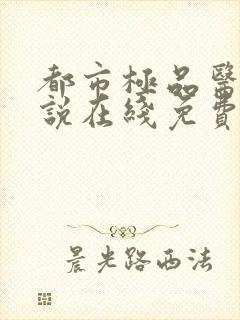 都市極品醫
說在綫免費
晨光路西法